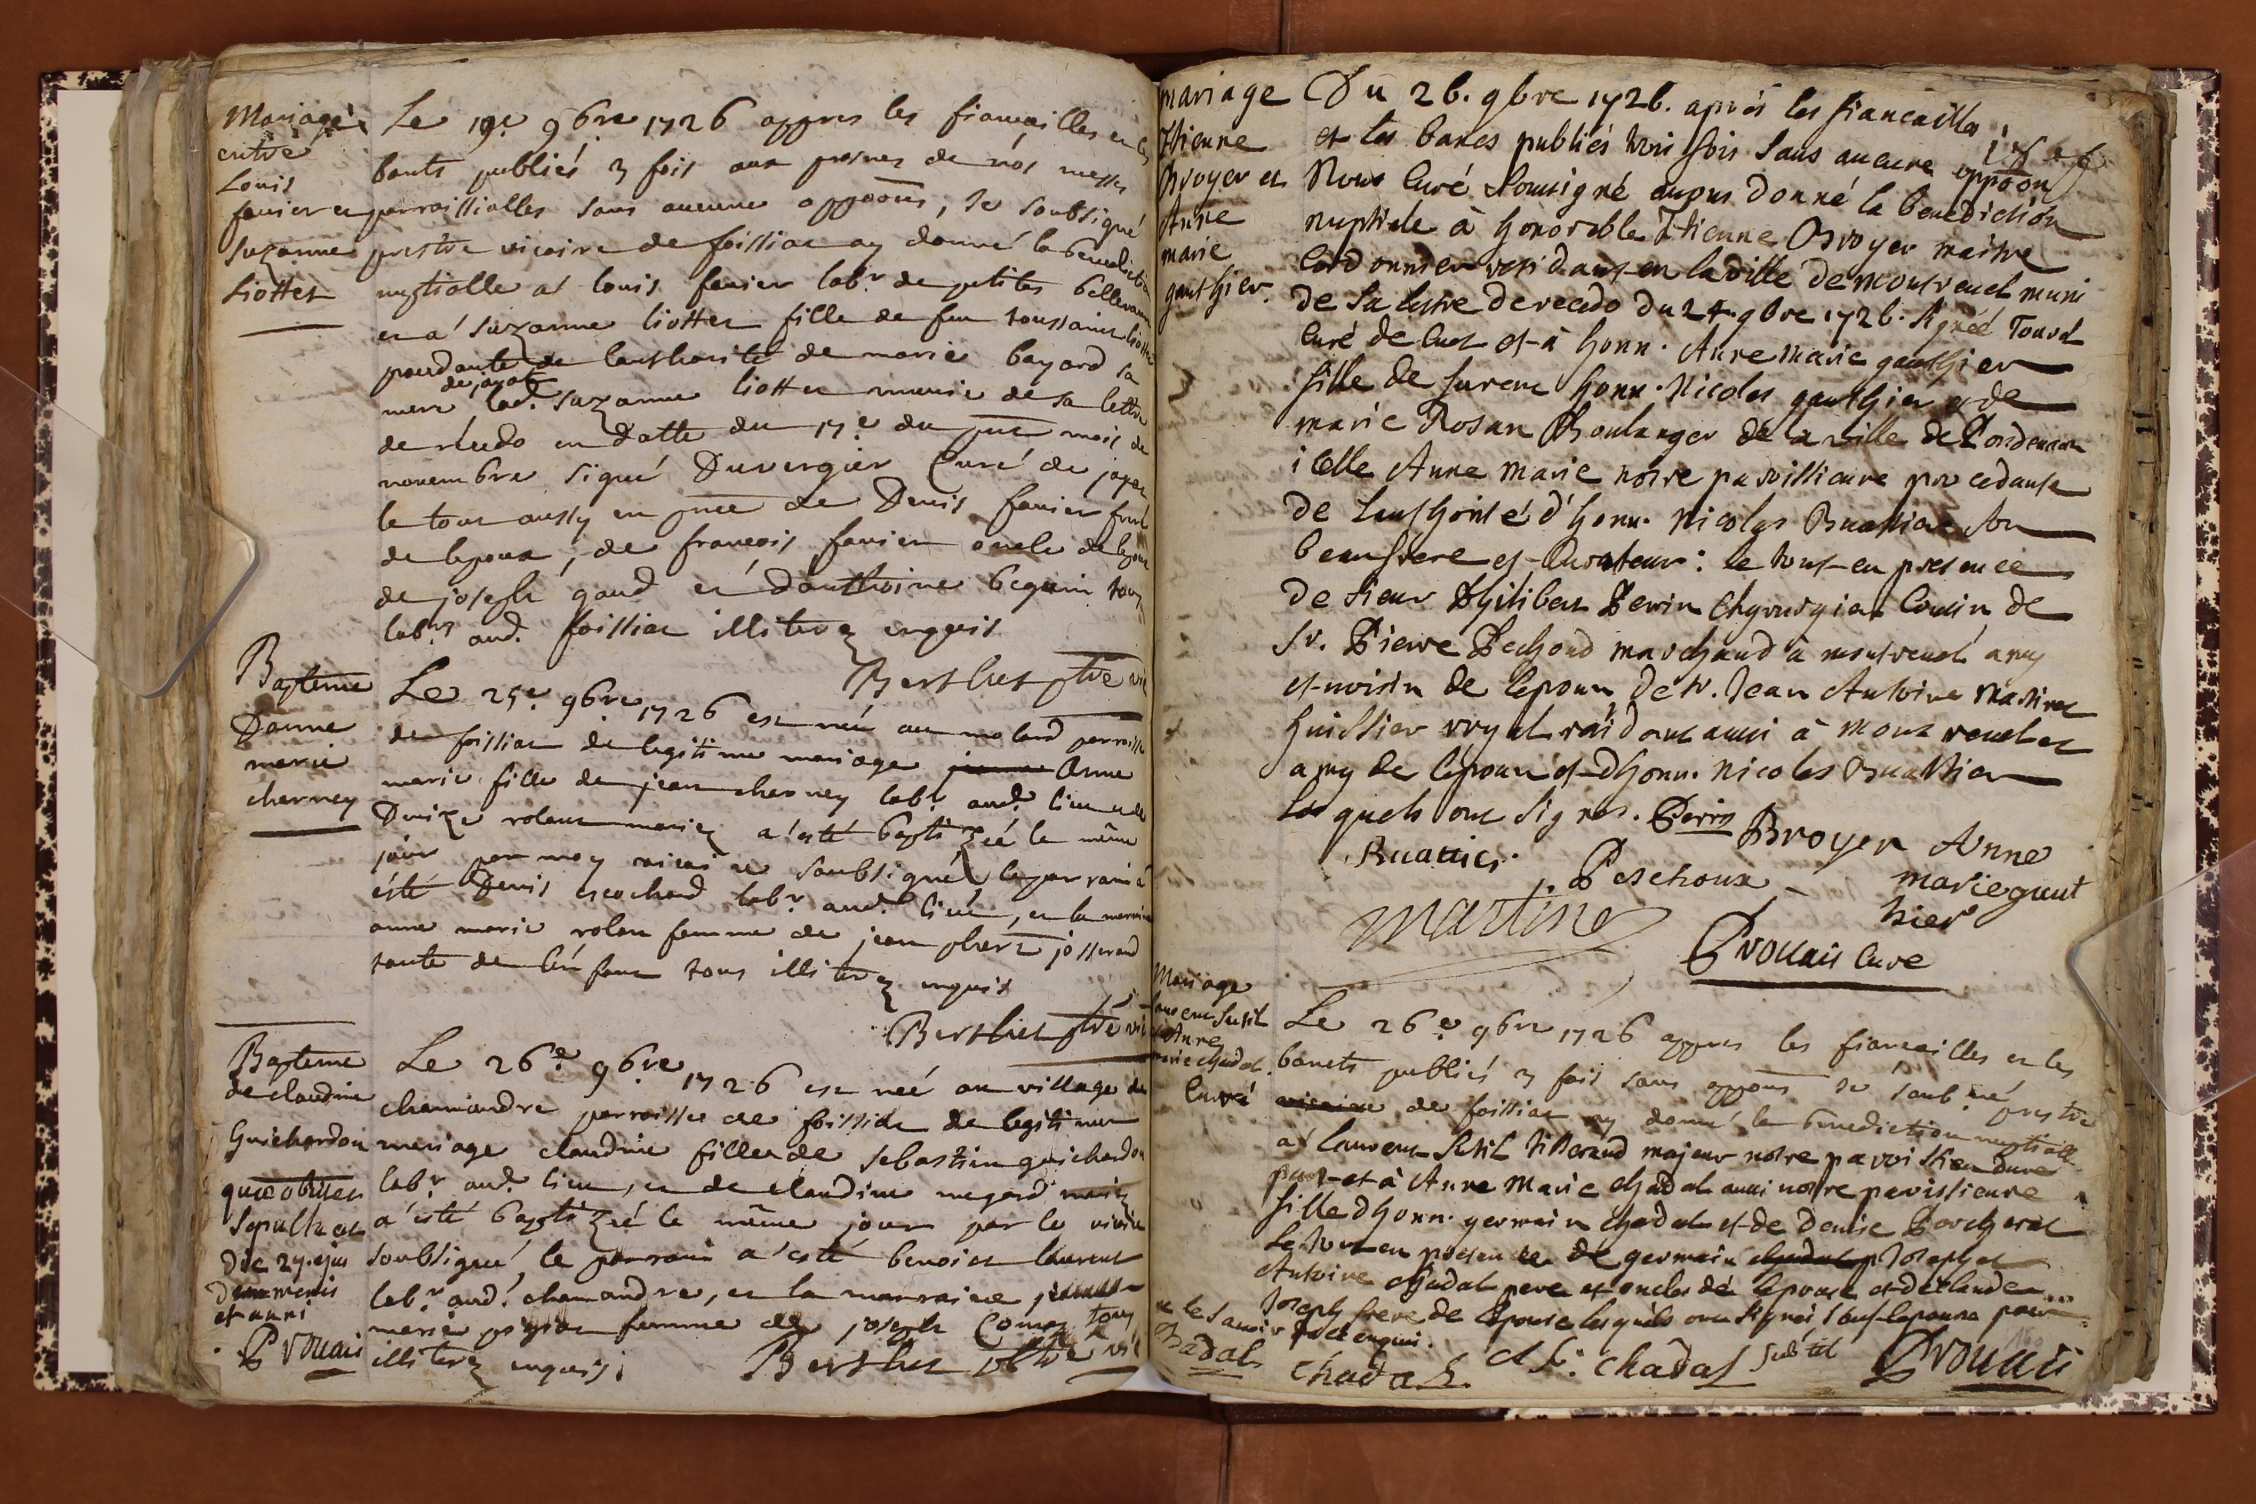 Mariage
entre
Louis
favier et
suzanne
Liottet
Le 19e 9bre 1726 appres les fiancailles et les
bants publiés 3 fois aux prosnes de nos messes
parroissialles sans aucune oppoõn, Je soubsigné
prestre vicaire de foissiac ay donné la benediction
nuptialle a louis favier labr de petites
et a suzanne liottet fille de feu toussaint liottet
de lauthorité de marie bayard sa
de jayat
mere lad. suzanne liottet munie de sa lettre
de recedo en datte du 17e du pnt mois de
novembre signé Duvergier Curé de jayat
le tout aussy en pnce de Denis favier frere
de lepoux, de francois favier oncle de lepoux
de joseph gaud et danthoine beguin tous
labrs aud. foissiac illiterez enquis
Berthet ptre vic
Bapteme
Danne
marie
charney
Le 25e 9bre 1726 est née au molard parroisse
de foissiac de legitime mariage Anne
marie fille de jean charney labr aud. lieu et de
Denize rolant mariez a esté baptizée le même
jour par moy vicaire soubsigné le parrain a
esté Denis escochard labr aud. lieu, et la marraine
anne marie rolan femme de jean josserand
tante de lenfant tous illiterez enquis
Berthet ptre vic
Bapteme
de claudine
Guichardon
quæ obiit et
Sepulta est
die 27 ejus
dem mensis
et anni
Prouais
Le 26e 9bre 1726 est neé au village de
chamandre parroisse de foissiac de legitime
mariage claudine fille de sebastien guichardon
labr aud. lieu, et de claudine megard mariez
a esté baptizée le même jour par le vicaire
soubsigné, le parrain a esté benoict laurent
labr aud. chamandre, et la marraine
marie femme de joseph Comas tous
illiterez enquis.
Berthet ptre vic
mariage
Etienne
Broyer et
Anne
marie
gauthier.
Du 26. 9bre 1726. aprés les fiancailles
et les bancs publiés trois fois Sans aucune oppoõn
Nous Curé Sousigné avons donné la benediction
nuptiale à honorable Etienne Broyer maitre
Cordonnier residant en la ville de Montrevel muni
de Sa lettre de recedo du 24. 9bre 1726. Signé
Curé de Cuet et à honn. Anne Marie gauthier
fille de Honn. Nicolas gauthier et de
marie Rosan Boulanger de la ville de
icelle Anne Marie notre paroissienne procedante
de Lauthorité d'honn. Nicolas Buattier Son
beaufrere et Curateur: le tout en presence
de Sieur Philibert Perrin Chyrurgien Cousin de
Sr. Pierre Pechoud marchand à montrevel amy
et voisin de lepoux de Sr. Jean Antoine Martinet
huissier royal residant aussi à Montrevel et
amy de lépoux et Dhonn. Nicolas Buattier
Lesquels ont Signés. Perrin Broyer Anne
Buattier Peschoux mariegaut
hier
martinet
Prouais Cure
Mariage
Laurent Subtil
et Anne
marie chadal.
Curé
Le 26e 9bre 1726 appres les fiancailles et les
bancts publiés 3 fois sans oppoõns Je soubsigné prestre
vicaire de foissiac ay donné la benediction nuptialle
a Laurent Subtil tisserand majeur notre parroissien Dune
part et à Anne Marie chadal aussi notre parissienne
fille Dhonn. germain chadal et de Denise
Le tout en presence de germain chadal Joseph et
Antoine chadal pere et oncles de lepouse et de Claude
Joseph frere de lepouse lesquels ont Signés Sauf lepouse pour
ne le Savoir de ce enquis.
chadal Chadal Subtil Prouais